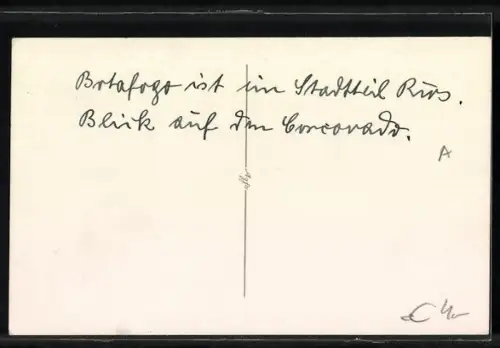 Botafogo ist ein Stadtteil Rios.
Blick auf den Corcovado.
A
Agfa
€ 4,-